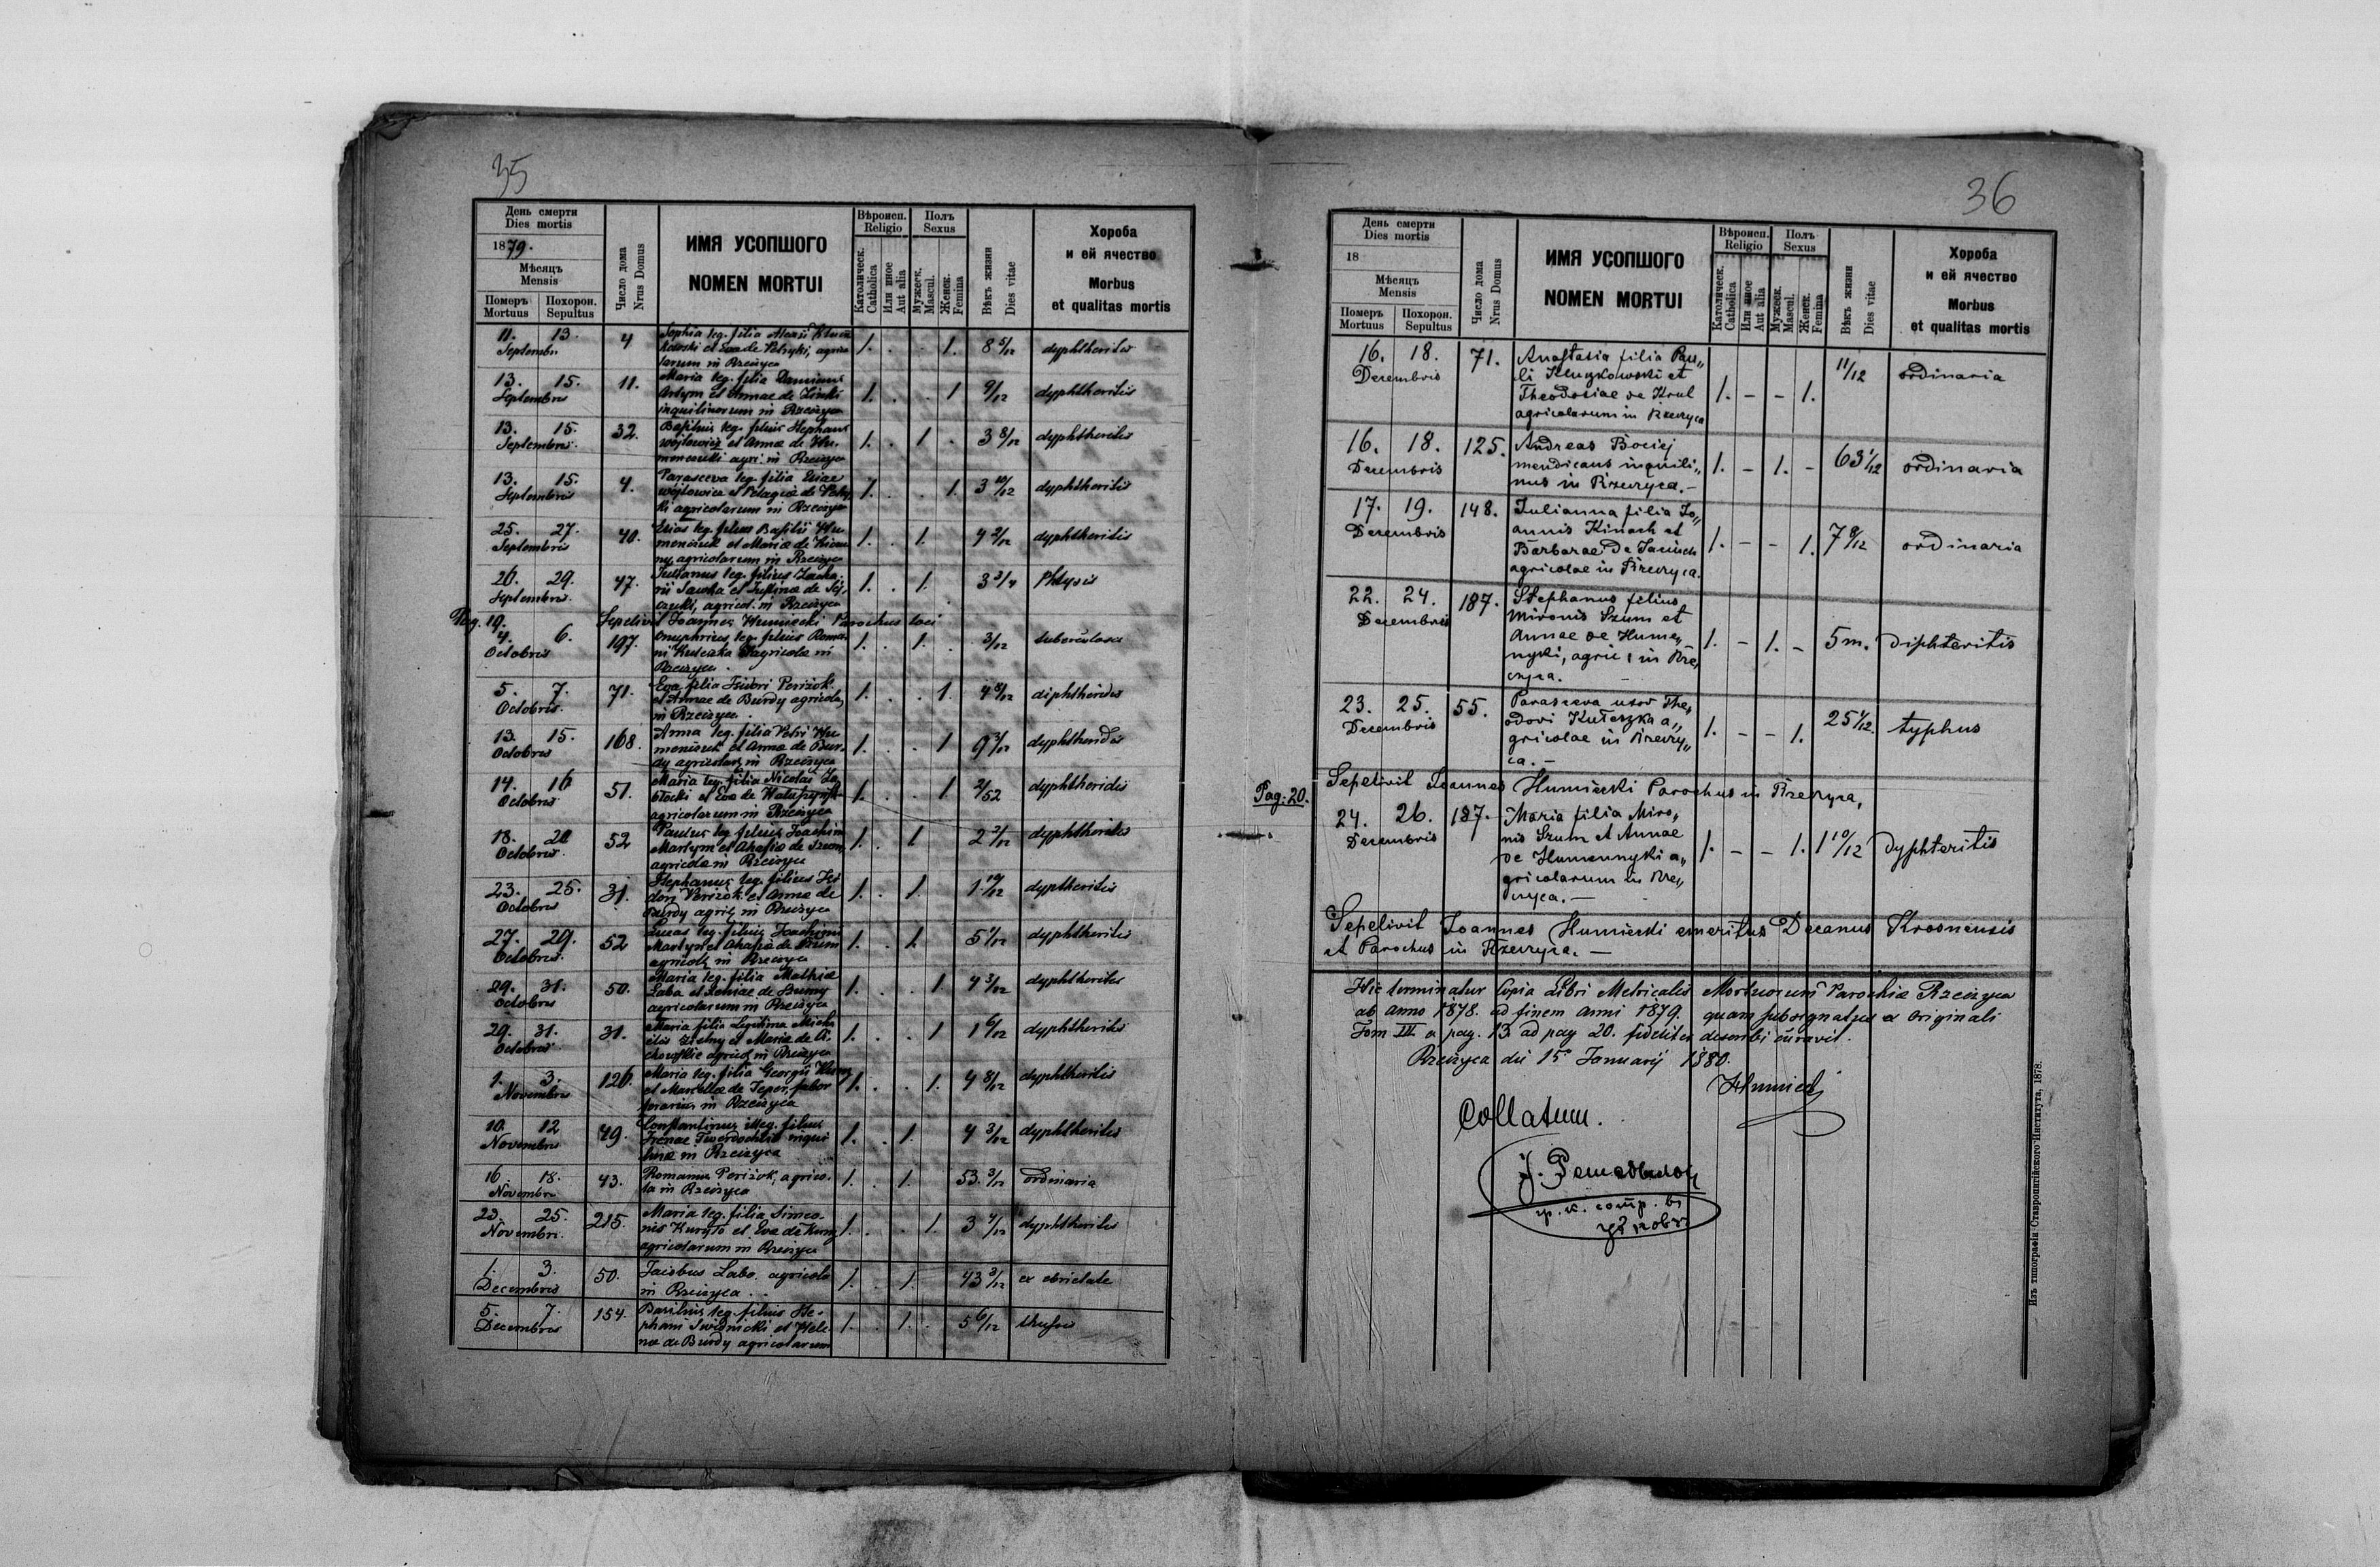 35
День смерти
Dies mortis
1879.
Мѣсяцъ
Mensis
Померъ Похорон.
Mortuus Sepultus
Число дома
Nrus Domus
ИМЯ УСОПШОГО
NOMEN MORTUI
Вѣроисп.
Religio
Католическ.
Catholica
Или иное
Aut alia
Полъ
Sexus
Мужеск.
Mascul.
Женск.
Femina
Вѣкъ жизни
Dies vitae
Хороба
и ей ячество
Morbus
et qualitas mortis
11. 13. 4 Sophia leg. filia Alexii 1. . . 1. 8 5/12 dyphtheritis
Septembri kowski et Evae de Petryki, agrico
larum in Rzeizyca
13. 15. 11. Maria leg. filia Damiani 1. . . 1 9/12 dyphtheritis
Septembris et Annae de
inquilinorum in Rzeizyca
13. 15. 32. Basilius leg. filius Stephani 1. . 1. . 3 8/12 dyphtheritis
Septembris Wojtowicz et Annae de Hu-
agri. in Rzeizyca
13. 15. 4. Parasceva leg. filia Eliae 1. . . 1. 3 10/12 dyphtheritis
Septembris Wojtowicz et Pelagiae de Petry
ki agricolarum in Rzeizyca
25. 27. 40. Elias leg. filius Basilii Hu- 1. . 1. 4 2/12 dyphtheritis
Septembris et Mariae de
agricolarum in Rzeizyca
26. 29. 47. Julianus leg. filius Zacha- 1. . 1. 3 3/4 Phtysis
Septembris. rii Sawka et Justinae de
agricol. in Rzeizyca
Pag. 19. Sepelivit Joannes Humiecki Parochus loci
4. 6. 197. Onuphrius leg. filius Roma- 1. . 1. . 3/12 tuberculosa
Octobris ni Kuteszka agricolae in
Rzeizyca.
5. 7. 71. Eva filia Isidori Perizok 1. . . 1. 4 8/12 diphtheridis
Octobris. et Annae de Burdy agricolae
in Rzeizyca.
13. 15. 168. Anna leg. filia Petri Hu- 1. . . 1 9 3/12 dyphtheridis
Octobris et Annae de Bur-
dy agricolar. in Rzeizyca
14. 16 51. Maria leg. filia Nicolai Za- 1. . . 1 2/52 dyphtheridis
Octobris błocki et Evae de
agricolarum in Rzeizyca
18. 20 52 Paulus leg. filius Joachim 1. . 1 2 2/12 dyphtheritis
Octobris. Martym et Ahafia de Szum,
agricolae in Rzeizyca
23. 25. 31. Stephanus leg. filius Isi 1. . 1. 1 10/12 dyphtheritis
Octobris dori Perizok et Annae de
Burdy agric. in Rzeizyca
27. 29. 52 Lucas leg. filius Joachimi 1. . 1. 5 1/12 dyphtheritis
Octobris. Martym et Ahafia de Szum
agricol. in Rzeizyca
29. 31. 50. Maria leg. filia Mathiae 1. . . 1 4 3/12 dyphtheritis
Octobris Laba et Xeniae de Szumy
agricolarum in Rzeizyca
29. 31. 31. Maria filia Legitima Micha 1. . . 1 1 6/12 dyphtheritis
Octobris elis et Mariae de
agricol. in Rzeizyca
1. 3. 126. Maria leg. filia Georgii 1. . . 1. 4 8/12 dyphtheritis
Novembris et Marellae de
in Rzeizyca
10. 12 49. Constantinus illeg. filius 1. . 1. 4 3/12 dyphtheritis
Novembris Irenae inqui
linae in Rzeizyca
16 18. 43. Romanus Perizok, agrico- 1. . 1. 53. 3/12 ordinaria
Novembri la in Rzeizyca
23. 25. 215. Maria leg. filia Simeo- 1. . . 1. 3 4/12 dyphtheritis
Novembri. nis et Evae de
agricolarum in Rzeizyca
1. 3. 50. Jacobus Labo agricola 1. . 1. 43 3/12 ex ebrietate
Decembris in Rzeizyca.
5. 7. 154. Basilius leg. filius Ste- 1. . 1. . 5 6/12
Decembris phani Swidnicki et Hele-
nae de Burdy agricolarum
36
День смерти
Dies mortis
18
Мѣсяцъ
Mensis
Померъ Похорон.
Mortuus Sepultus
Число дома
Nrus Domus
ИМЯ УСОПШОГО
NOMEN MORTUI
Вѣроисп.
Religio
Католическ.
Catholica
Или иное
Aut alia
Полъ
Sexus
Мужеск.
Mascul.
Женск.
Femina
Вѣкъ жизни
Dies vitae
Хороба
и ей ячество
Morbus
et qualitas mortis
16. 18. 71. Anastasia filia Pau„ 1. - - 1. 11/12 ordinaria
Decembris li Kluzkowski et
Theodosiae de Krul
agricolarum in Rzeczyca
16. 18. 125. Andreas Bociej 1. - 1. - 63 1/12 ordinaria
Decembris mendicans inquili„
nus in Rzeczyca.-
17. 19. 148. Julianna filia Jo„ 1. - - 1. 7 8/12 ordinaria
Decembris annis Kinach et
Barbarae de Jacinch
agricolae in Rzeczyca.
22. 24. 187. Stephanus filius 1. - 1. - 5 m. diphteritis
Decembris Mironis Szum et
Annae de Hume„
nyki, agric: in Rze„
czyca.
23. 25. 55. Parasceva uxor The„ 1. - - 1. 25 1/12. typhus
Decembris odori Kuteszka a„
gricolae in Rzeczy„
ca. -
Sepelivit Joannes Humiecki Parochus in Rzeczyca,
Pag: 20.
24. 26. 187. Maria filia Miro„ 1. - - 1. 1 10/12 dyphteritis
Decembris nis Szum et Annae
de Humennyki a„
gricolarum in Rze„
czyca. -
Sepelivit Joannes Humiecki emeritus Decanus Krosnensis
et Parochus in Rzeczyca. -
Hic terminatur Copia Libri Metricalis Mortuorum Parochiae Rzeizyca
ab anno 1878. ad finem anni 1879. quam subsignatus ex originali
Tom III a pag. 13 ad pag 20. fideliter describi curavit.
Rzeizyca die 15 Januarij 1880.
Humiecki
Collatum.
гр. к. сотр. въ
Изъ типографіи Ставропигійского Института, 1878.